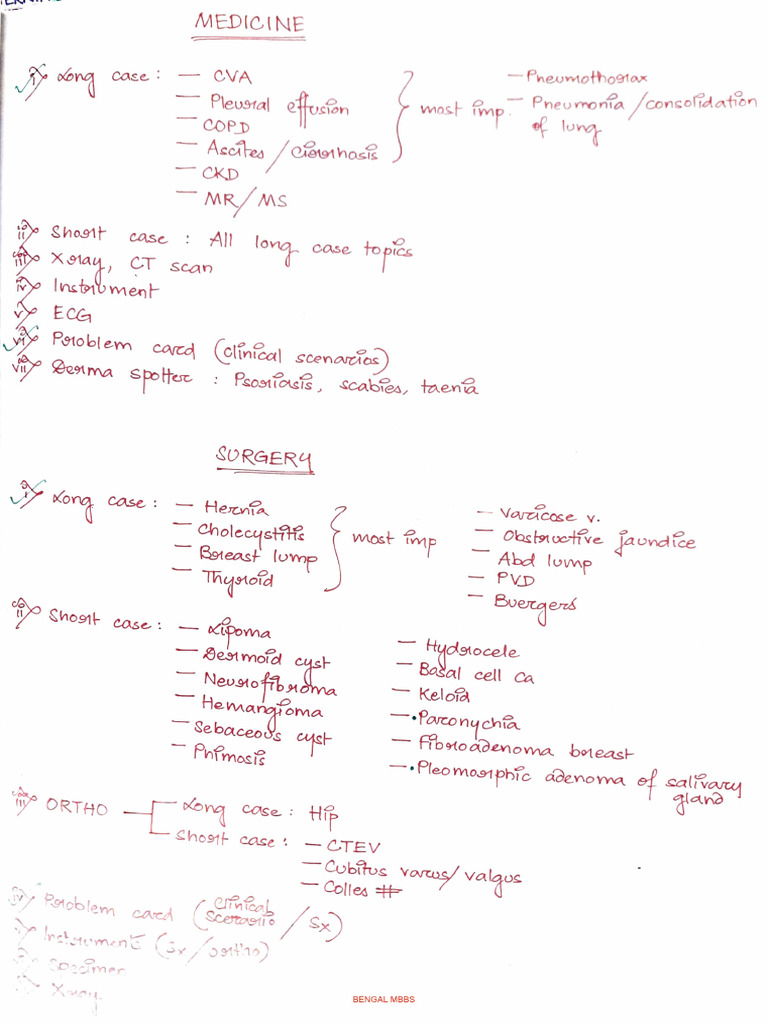 MEDICINE
i) Long case : — CVA
— Pleural effusion
— COPD
— Ascites / Cirrhosis
— CKD
— MR/MS
} most imp.
— Pneumothorax
— Pneumonia / consolidation
of lung
ii) Short case : All long case topics
iii) Xray, CT scan
iv) Instrument
v) ECG
vi) Problem card (clinical scenarios)
vii) Derma spotter : Psoriasis, scabies, taenia
SURGERY
i) Long case : — Hernia
— Cholecystitis
— Breast lump
— Thyroid
} most imp
— Varicose v.
— Obstructive jaundice
— Abd lump
— PVD
— Buergers
ii) Short case : — Lipoma
— Dermoid cyst
— Neurofibroma
— Hemangioma
— Sebaceous cyst
— Phimosis
— Hydrocele
— Basal cell Ca
— Keloid
— Paronychia
— Fibroadenoma breast
— Pleomorphic adenoma of salivary
gland
iii) ORTHO — Long case : Hip
Short case : — CTEV
— Cubitus varus/valgus
— Colles #
iv) Problem card (clinical scenario / Sx)
Instrument (Sx/ortho)
Specimen
Xray
BENGAL MBBS